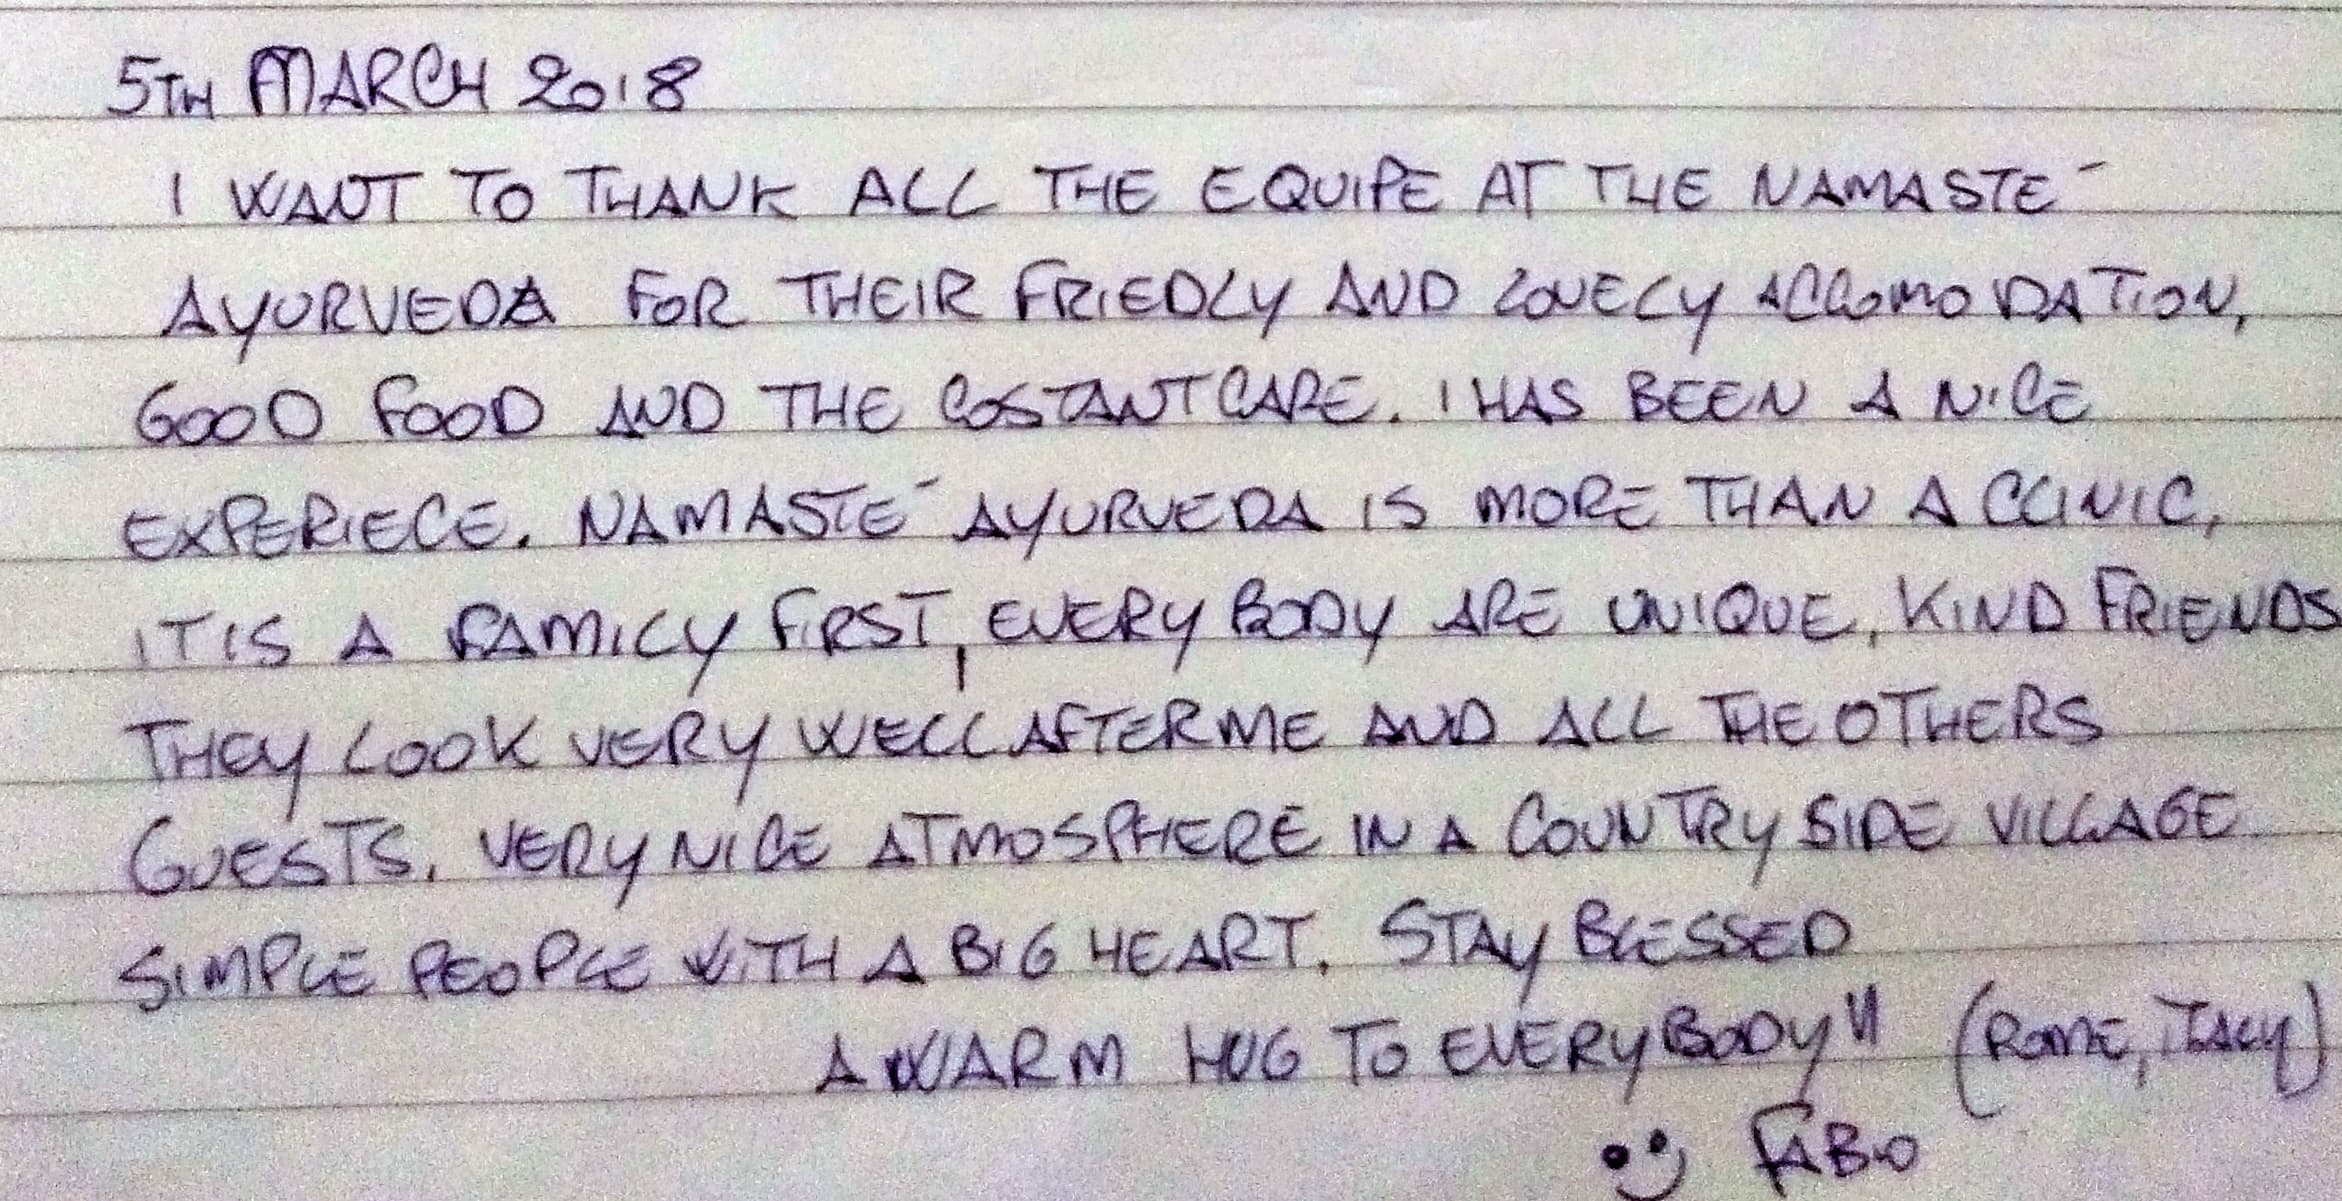 5TH MARCH 2018
I WANT TO THANK ALL THE EQUIPE AT THE NAMASTE´
AYURVEDA FOR THEIR FRIEDLY AND LOVELY ACCOMODATION,
GOOD FOOD AND THE COSTANT CARE. I HAS BEEN A NICE
EXPERIECE. NAMASTE´ AYURVEDA IS MORE THAN A CLINIC,
IT IS A FAMILY FIRST, EVERY BODY ARE UNIQUE, KIND FRIENDS
THEY LOOK VERY WELL AFTER ME AND ALL THE OTHERS
GUESTS. VERY NICE ATMOSPHERE IN A COUNTRY SIDE VILLAGE
SIMPLE PEOPLE WITH A BIG HEART. STAY BLESSED
A WARM HUG TO EVERY BODY!! (ROME, ITALY)
:) FABIO